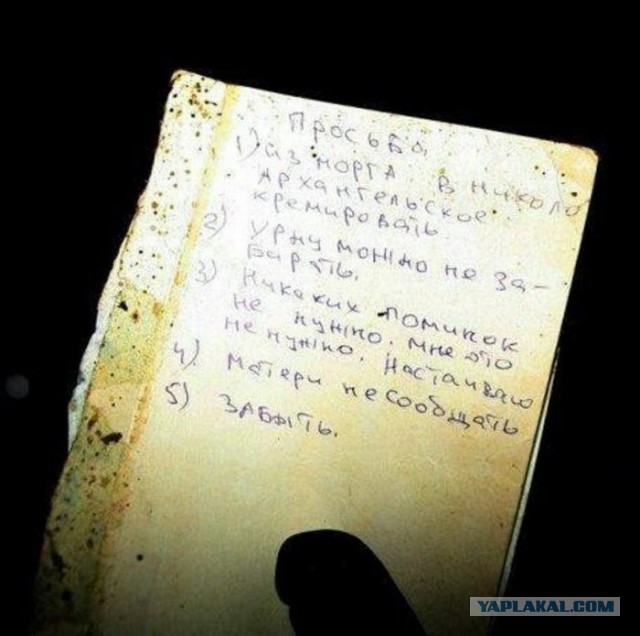 Просьба
1) из морга в Николо
Архангельское
кремировать
2) урну можно не за-
бирать.
3) Никаких поминок
не нужно. мне это
не нужно. Настаиваю
4) матери не сообщать
5) Забыть.
YAPLAKAL.COM